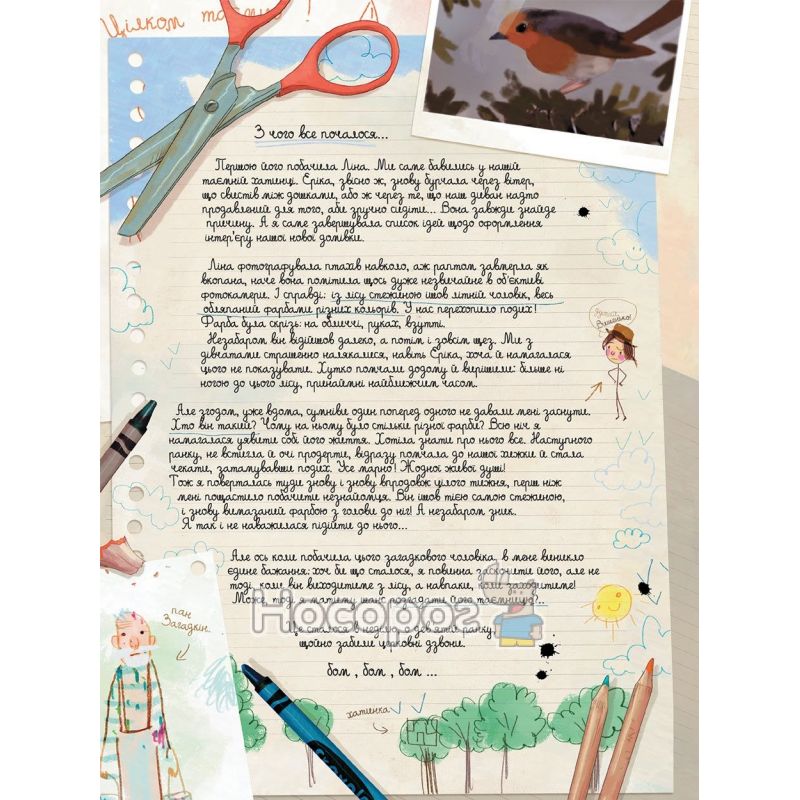 Цілком таємно!
З чого все почалося...
Першою його побачила Ліна. Ми саме бавились у нашій
таємній хатинці. Еріка, звісно ж, знову бурчала через вітер,
що свистів між дошками, або ж через те, що наш диван надто
продавлений для того, аби зручно сидіти... Вона завжди знайде
причину. А я саме завершувала список ідей щодо оформлення
інтер'єру нашої нової домівки.
Ліна фотографувала птахів навколо, аж раптом завмерла як
вкопана, наче вона помітила щось дуже незвичайне в об'єктиві
фотокамери. І справді: із лісу стежиною ішов літній чоловік, весь
обляпаний фарбами різних кольорів. У нас перехопило подих!
Фарба була скрізь: на обличчі, руках, взутті.
Незабаром він відійшов далеко, а потім і зовсім щез. Ми з
дівчатами страшенно налякалися, навіть Еріка, хоча й намагалася
цього не показувати. Хутко помчали додому й вирішили: більше ні
ногою до цього лісу, принаймні найближчим часом.
Але згодом, уже вдома, сумніви один поперед одного не давали мені заснути.
Хто він такий? Чому на ньому було стільки різної фарби? Всю ніч я
намагалася уявити собі його життя. Хотіла знати про нього все. Наступного
ранку, не встигла й очі продерти, відразу помчала до нашої хижки й стала
чекати, затамувавши подих. Усе марно! Жодної живої душі!
Тож я поверталась туди знову і знову впродовж цілого тижня, перш ніж
мені пощастило побачити незнайомця. Він ішов тією самою стежиною,
і знову вимазаний фарбою з голови до ніг! А незабаром зник.
Я так і не наважилася підійти до нього...
Але ось коли побачила цього загадкового чоловіка, в мене виникло
єдине бажання: хоч би що сталося, я повинна заскочити його, але не
тоді, коли він виходитиме з лісу, а навпаки, коли заходитиме!
Може, тоді я матиму шанс розгадати його таємницю?..
Це сталося в неділю, о дев'ятій ранку,
щойно забили церковні дзвони.
бом, бом, бом...
пан
Загадкін
хатинка
Носорог